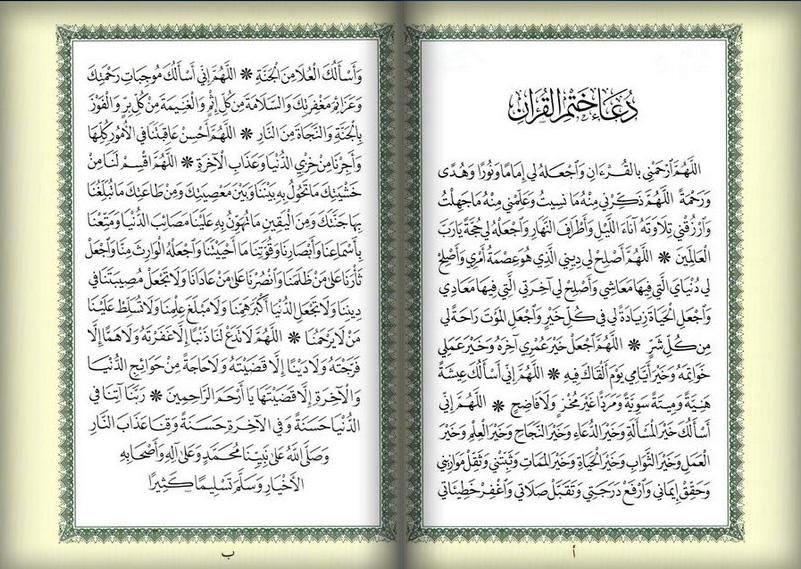 دُعَاءُ خَتْمِ القُرْآنِ
اللَّهُمَّ ارْحَمْنِي بِالقُرْءَانِ وَاجْعَلهُ لِي إِمَامًا وَنُورًا وَهُدًى
وَرَحْمَةً اللَّهُمَّ ذَكِّرْنِي مِنْهُ مَا نَسِيتُ وَعَلِّمْنِي مِنْهُ مَا جَهِلْتُ
وَارْزُقْنِي تِلَاوَتَهُ آنَاءَ اللَّيْلِ وَأَطْرَافَ النَّهَارِ وَاجْعَلْهُ لِي حُجَّةً يَارَبَّ
العَالَمِينَ * اللَّهُمَّ أَصْلِحْ لِي دِينِي الَّذِي هُوَ عِصْمَةُ أَمْرِي وَأَصْلِحْ
لِي دُنْيَايَ الَّتِي فِيهَا مَعَاشِي وَأَصْلِحْ لِي آخِرَتِي الَّتِي فِيهَا مَعَادِي
وَاجْعَلِ الحَيَاةَ زِيَادَةً لِي فِي كُلِّ خَيْرٍ وَاجْعَلِ المَوْتَ رَاحَةً لِي
مِن كُلِّ شَرٍّ * اللَّهُمَّ اجْعَلْ خَيْرَ عُمْرِي آخِرَهُ وَخَيْرَ عَمَلِي
خَوَاتِمَهُ وَخَيْرَ أَيَّامِي يَوْمَ أَلْقَاكَ فِيهِ * اللَّهُمَّ إِنِّي أَسْأَلُكَ عِيشَةً
هَنِيَّةً وَمِيتَةً سَوِيَّةً وَمَرَدًّا غَيْرَ مُخْزٍ وَلَا فَاضِحٍ * اللَّهُمَّ إِنِّي
أَسْأَلُكَ خَيْرَ المَسْأَلَةِ وَخَيْرَ الدُّعَاءِ وَخَيْرَ النَّجَاحِ وَخَيْرَ العِلْمِ وَخَيْرَ
العَمَلِ وَخَيْرَ الثَّوَابِ وَخَيْرَ الحَيَاةِ وَخَيْرَ المَمَاتِ وَثَبِّتْنِي وَثَقِّلْ مَوَازِينِي
وَحَقِّقْ إِيمَانِي وَارْفَعْ دَرَجَتِي وَتَقَبَّلْ صَلَاتِي وَاغْفِرْ خَطِيئَاتِي
أ
وَأَسْأَلُكَ العُلَا مِنَ الجَنَّةِ * اللَّهُمَّ إِنِّي أَسْأَلُكَ مُوجِبَاتِ رَحْمَتِكَ
وَعَزَائِمَ مَغْفِرَتِكَ وَالسَّلَامَةَ مِن كُلِّ إِثْمٍ وَالْغَنِيمَةَ مِن كُلِّ بِرٍّ وَالْفَوْزَ
بِالْجَنَّةِ وَالنَّجَاةَ مِنَ النَّارِ * اللَّهُمَّ أَحْسِنْ عَاقِبَتَنَا فِي الأُمُورِ كُلِّهَا
وَأَجِرْنَا مِنْ خِزْيِ الدُّنْيَا وَعَذَابِ الآخِرَةِ * اللَّهُمَّ اقْسِمْ لَنَا مِنْ
خَشْيَتِكَ مَا تَحُولُ بِهِ بَيْنَنَا وَبَيْنَ مَعْصِيَتِكَ وَمِنْ طَاعَتِكَ مَا تُبَلِّغُنَا
بِهَا جَنَّتَكَ وَمِنَ اليَقِينِ مَا تُهَوِّنُ بِهِ عَلَيْنَا مَصَائِبَ الدُّنْيَا وَمَتِّعْنَا
بِأَسْمَاعِنَا وَأَبْصَارِنَا وَقُوَّتِنَا مَا أَحْيَيْتَنَا وَاجْعَلْهُ الوَارِثَ مِنَّا وَاجْعَلْ
ثَأْرَنَا عَلَى مَنْ ظَلَمَنَا وَانْصُرْنَا عَلَى مَنْ عَادَانَا وَلَا تَجْعَلْ مُصِيبَتَنَا فِي
دِينِنَا وَلَا تَجْعَلِ الدُّنْيَا أَكْبَرَ هَمِّنَا وَلَا مَبْلَغَ عِلْمِنَا وَلَا تُسَلِّطْ عَلَيْنَا
مَنْ لَا يَرْحَمُنَا * اللَّهُمَّ لَا تَدَعْ لَنَا ذَنْبًا إِلَّا غَفَرْتَهُ وَلَا هَمًّا إِلَّا
فَرَّجْتَهُ وَلَا دَيْنًا إِلَّا قَضَيْتَهُ وَلَا حَاجَةً مِنْ حَوَائِجِ الدُّنْيَا
وَالآخِرَةِ إِلَّا قَضَيْتَهَا يَا أَرْحَمَ الرَّاحِمِينَ * رَبَّنَا آتِنَا فِي
الدُّنْيَا حَسَنَةً وَفِي الآخِرَةِ حَسَنَةً وَقِنَا عَذَابَ النَّارِ
وَصَلَّى اللهُ عَلَى نَبِيِّنَا مُحَمَّدٍ وَعَلَى آلِهِ وَأَصْحَابِهِ
الأَخْيَارِ وَسَلَّمَ تَسْلِيمًا كَثِيرًا
ب